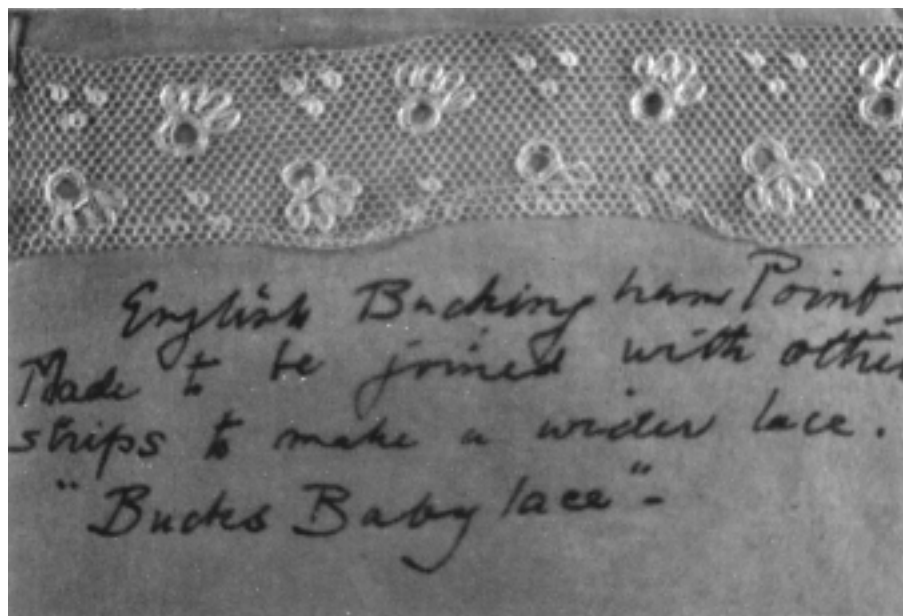 English Buckingham Point
Made to be joined with other
strips to make a wider lace.
"Bucks Baby lace"-